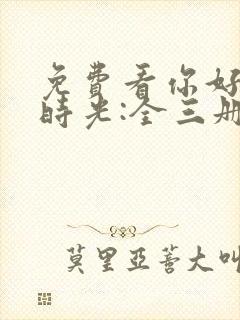 免費看你好
時光:全三册
莫里亞蓍大叫